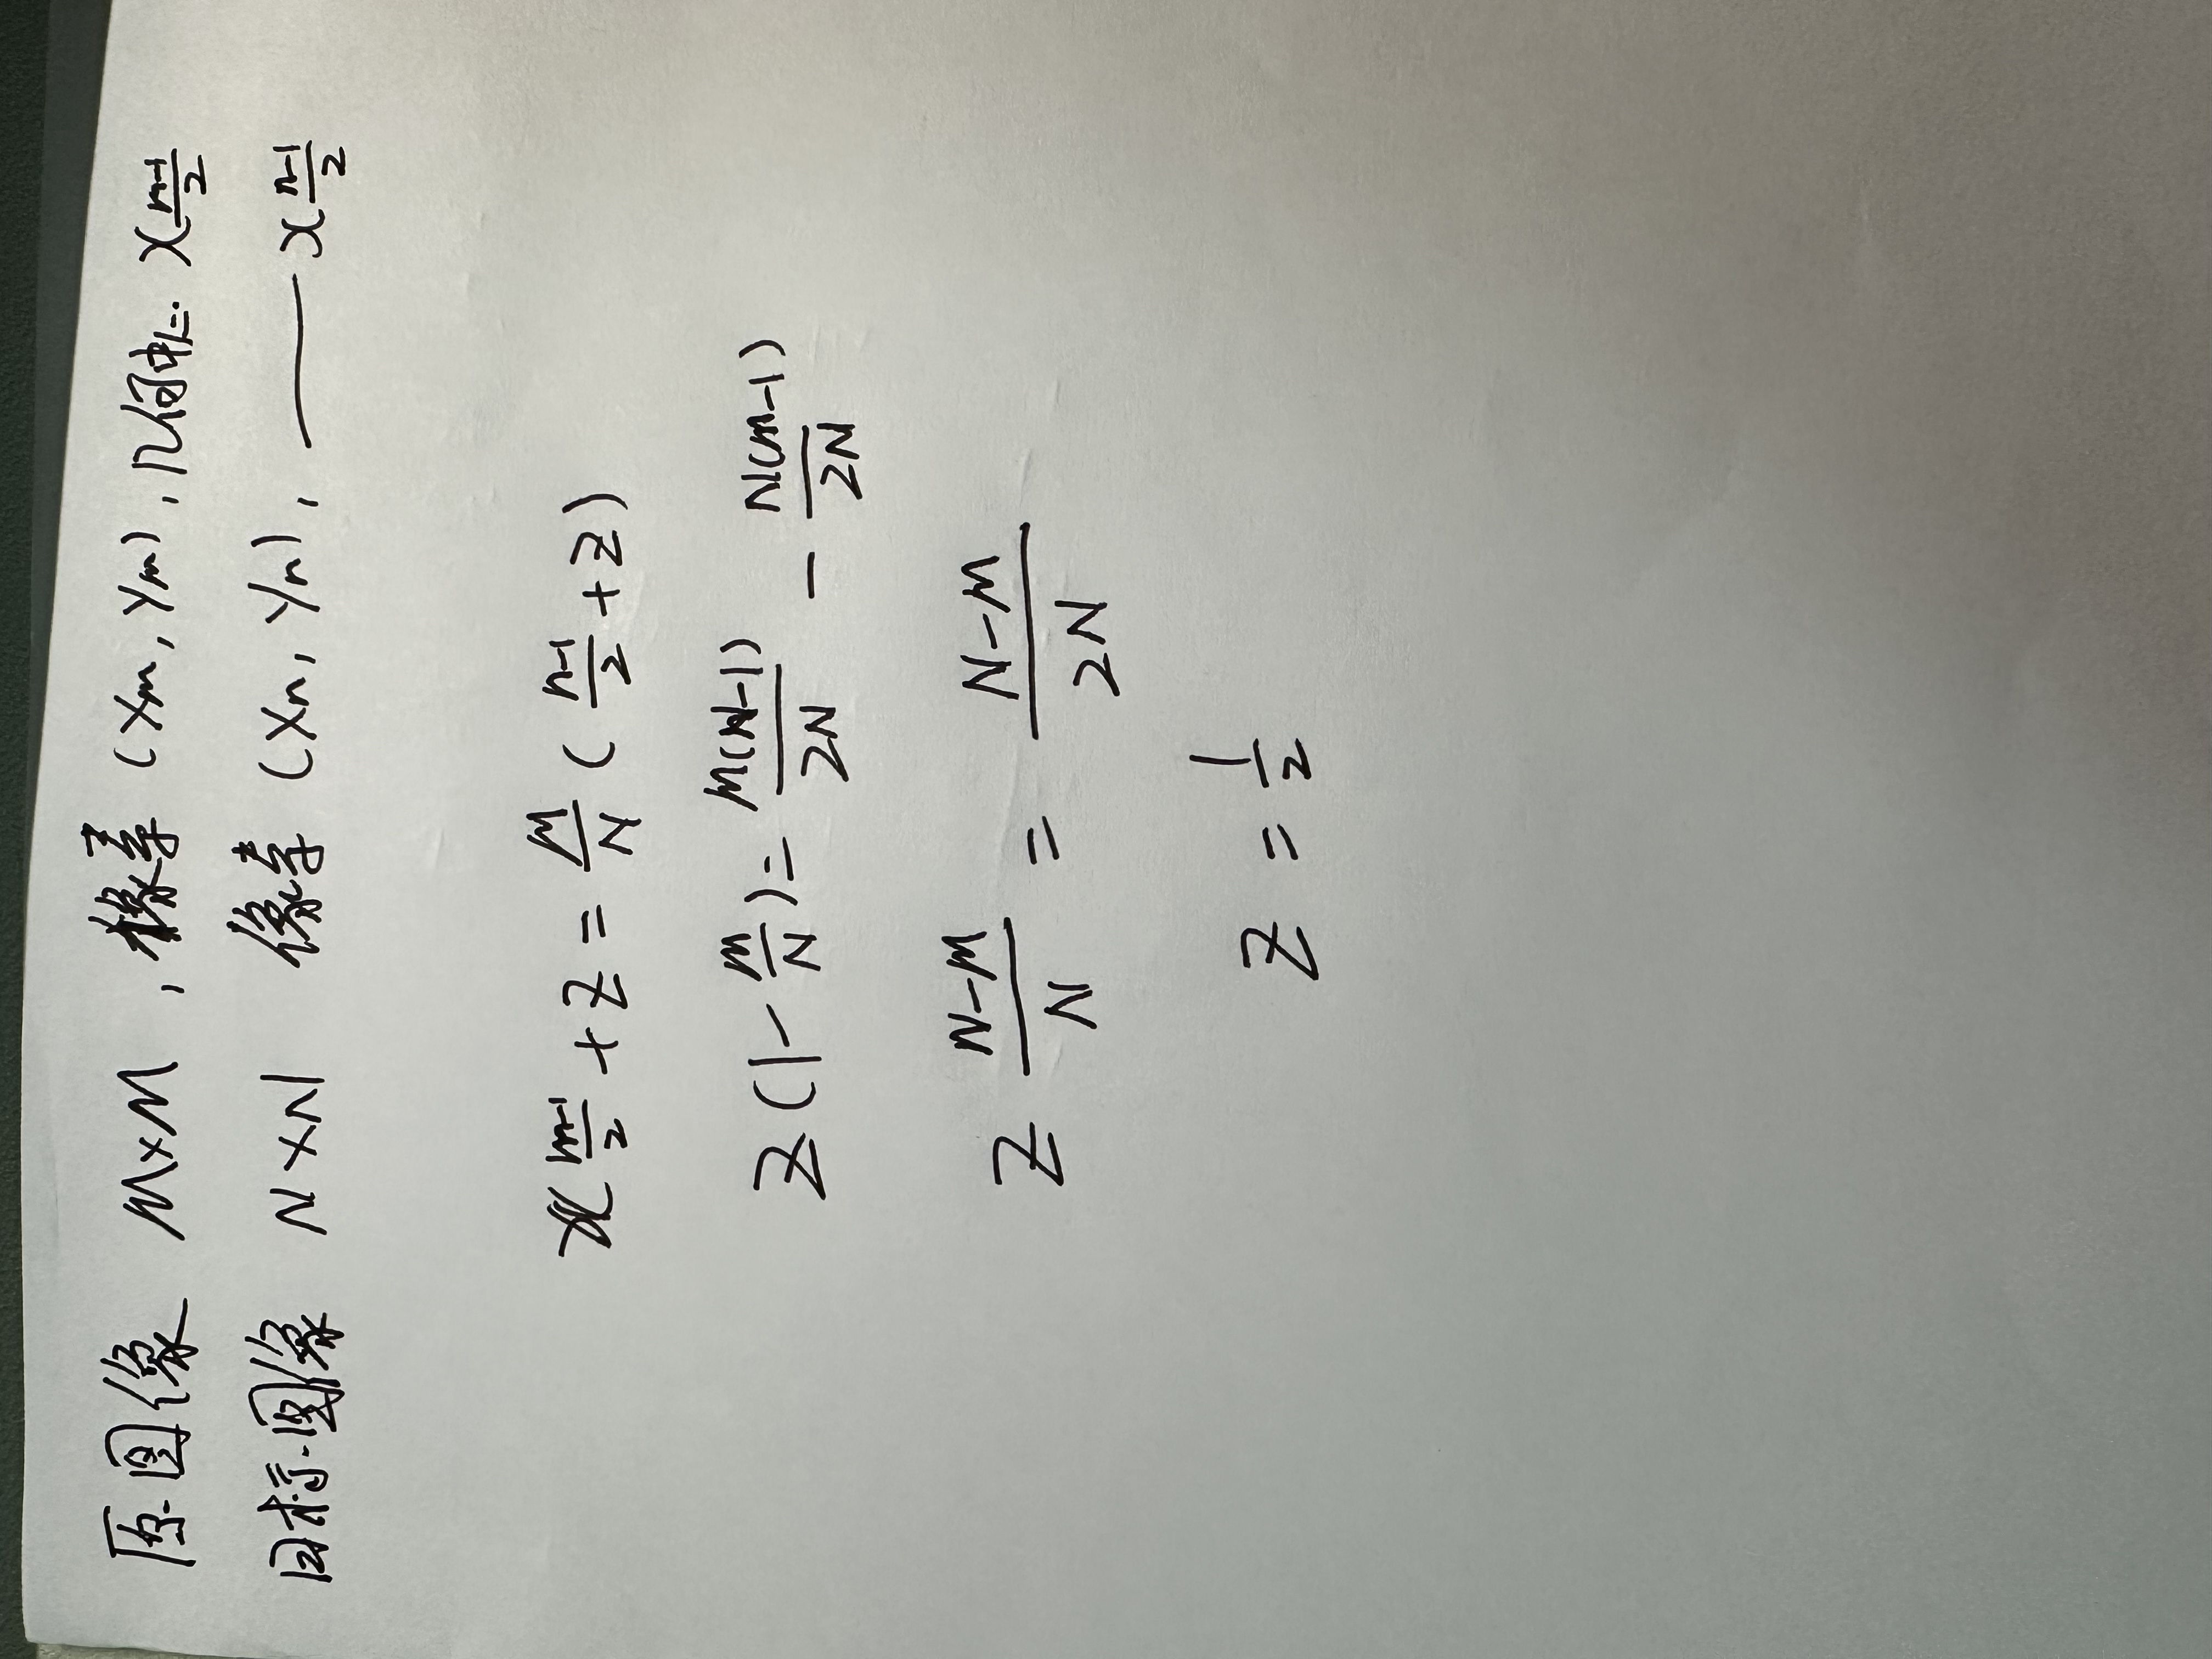 原图像 M×M , 像素 (Xm, Ym), 几何中心 x (m-1)/2
目标图像 N×N 像素 (Xn, Yn), —— x (n-1)/2
(m-1)/2 + Z = M/N ( (n-1)/2 + Z )
Z (1 - M/N) = M(N-1)/2N - N(M-1)/2N
Z (N-M)/N = (N-M)/2N
Z = 1/2